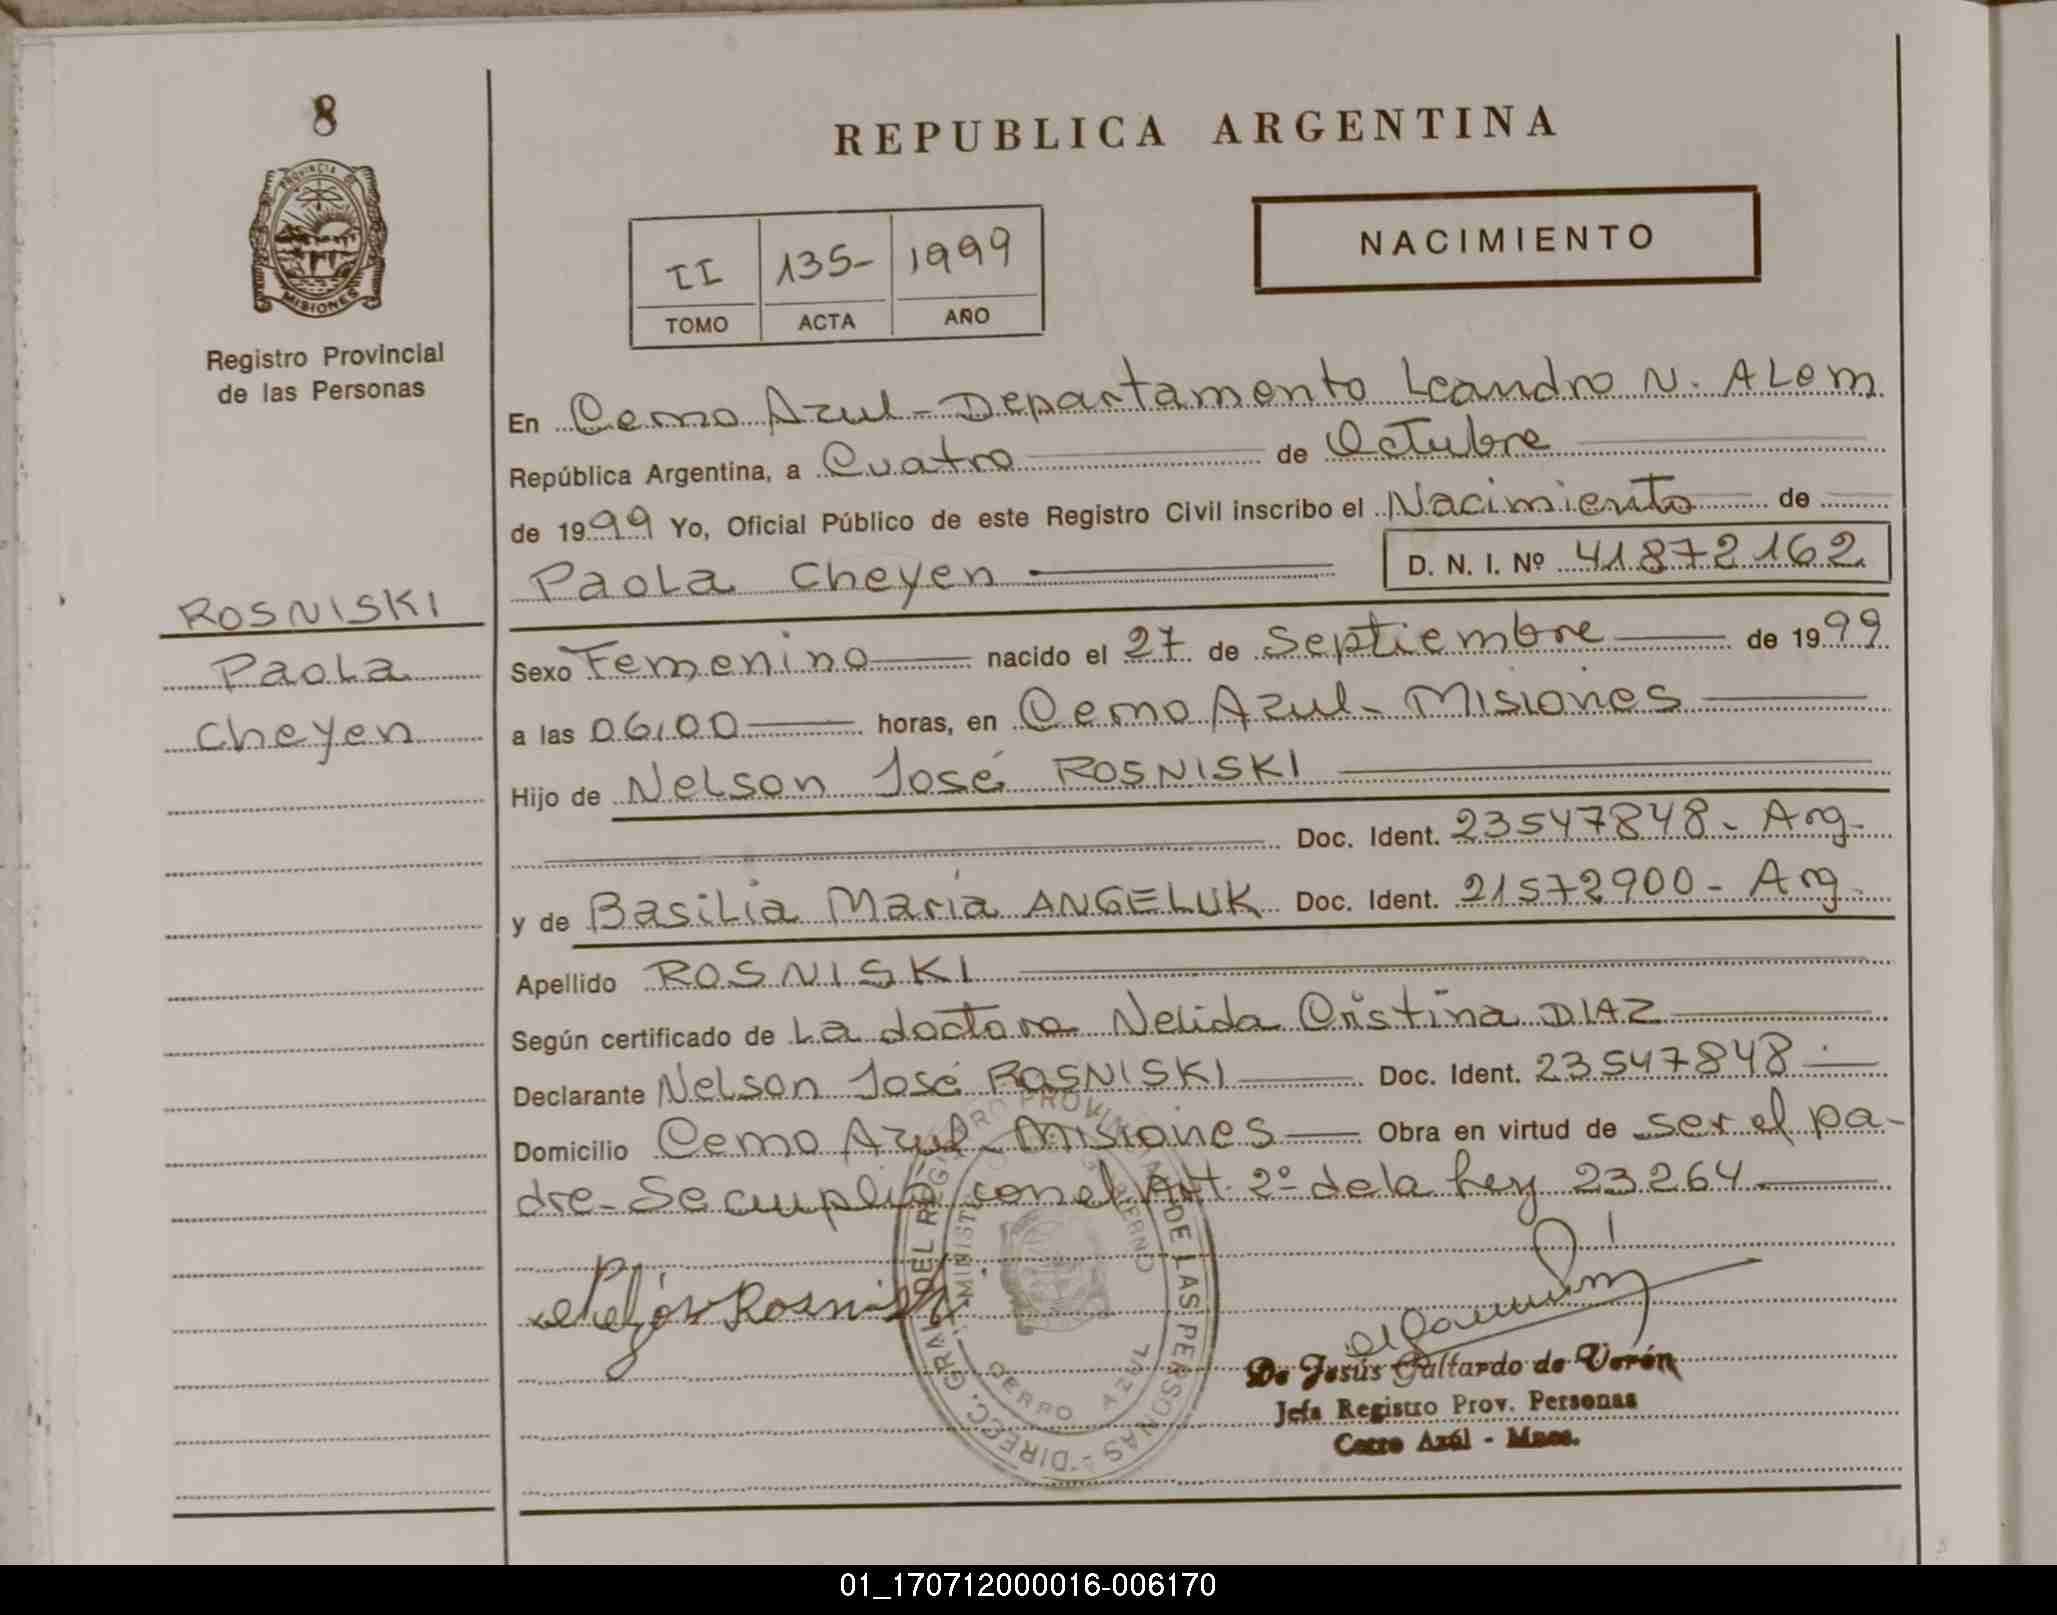 8
PROVINCIA DE
MISIONES
Registro Provincial
de las Personas
ROSNISKI
Paola
Cheyen
REPUBLICA ARGENTINA
II 135- 1999
TOMO ACTA AÑO
NACIMIENTO
En Cerro Azul - Departamento Leandro N. ALem
República Argentina, a Cuatro de Octubre
de 1999 Yo, Oficial Público de este Registro Civil inscribo el Nacimiento de
Paola Cheyen D. N. I. Nº 41872162
Sexo Femenino nacido el 27 de Septiembre de 1999
a las 06,00 horas, en Cerro Azul - Misiones
Hijo de Nelson José ROSNISKI
Doc. Ident. 23547848 - Arg.
y de Basilia María ANGELUK Doc. Ident. 21572900 - Arg.
Apellido ROSNISKI
Según certificado de La doctora Nelida Cristina DIAZ
Declarante Nelson José ROSNISKI Doc. Ident. 23547848
Domicilio Cerro Azul - Misiones Obra en virtud de ser el pa-
dre - Se cumplió con el Art. 2º de la Ley 23.264
DIRECC. GRAL. DEL REGISTRO PROVINCIAL DE LAS PERSONAS
CERRO AZUL
De Jesús Gallardo de Verón
Jefa Registro Prov. Personas
Cerro Azúl - Mnes.
01_170712000016-006170